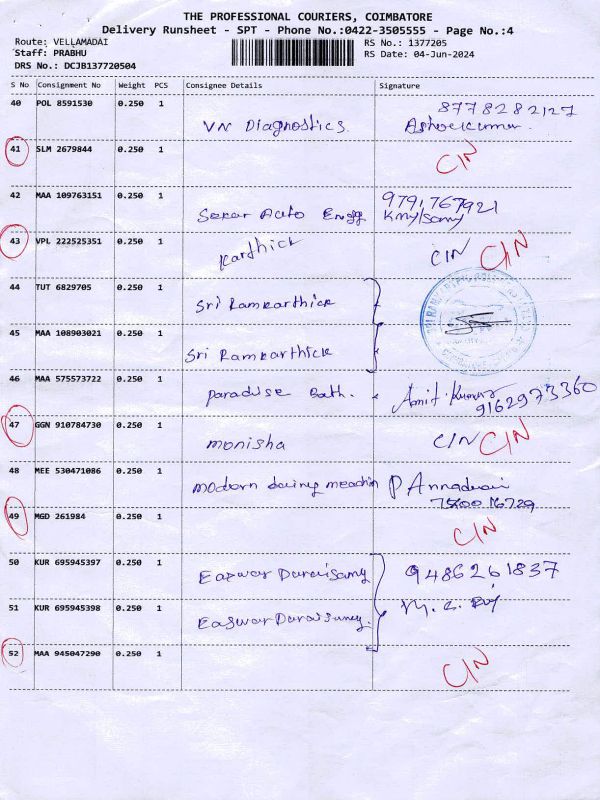 THE PROFESSIONAL COURIERS, COIMBATORE
Delivery Runsheet - SPT - Phone No.:0422-3505555 - Page No.:4
Route: VELLAMADAI
Staff: PRABHU
DRS No.: DCJB137720504
RS No.: 1377205
RS Date: 04-Jun-2024
S No Consignment No Weight PCS Consignee Details Signature
40 POL 8591530 0.250 1 VN Diagnostics. 8778282127
Ashokkumar.
41 SLM 2679844 0.250 1 C/N
42 MAA 109763151 0.250 1 Sekar Auto Engg 9791767921
43 VPL 222525351 0.250 1 Karthick C/N C/N
44 TUT 6829705 0.250 1 Sri Ramkarthick
45 MAA 108903021 0.250 1 Sri Ramkarthick
46 MAA 575573722 0.250 1 Paradise Bath. Amit Kumar
9162973360
47 GGN 910784730 0.250 1 Monisha C/N C/N
48 MEE 530471086 0.250 1 Modern P Annadurai
49 MGD 261984 0.250 1 C/N
50 KUR 695945397 0.250 1 Easwar Duraisamy 9486261837
51 KUR 695945398 0.250 1 Easwar Duraisamy.
52 MAA 945047290 0.250 1 C/N